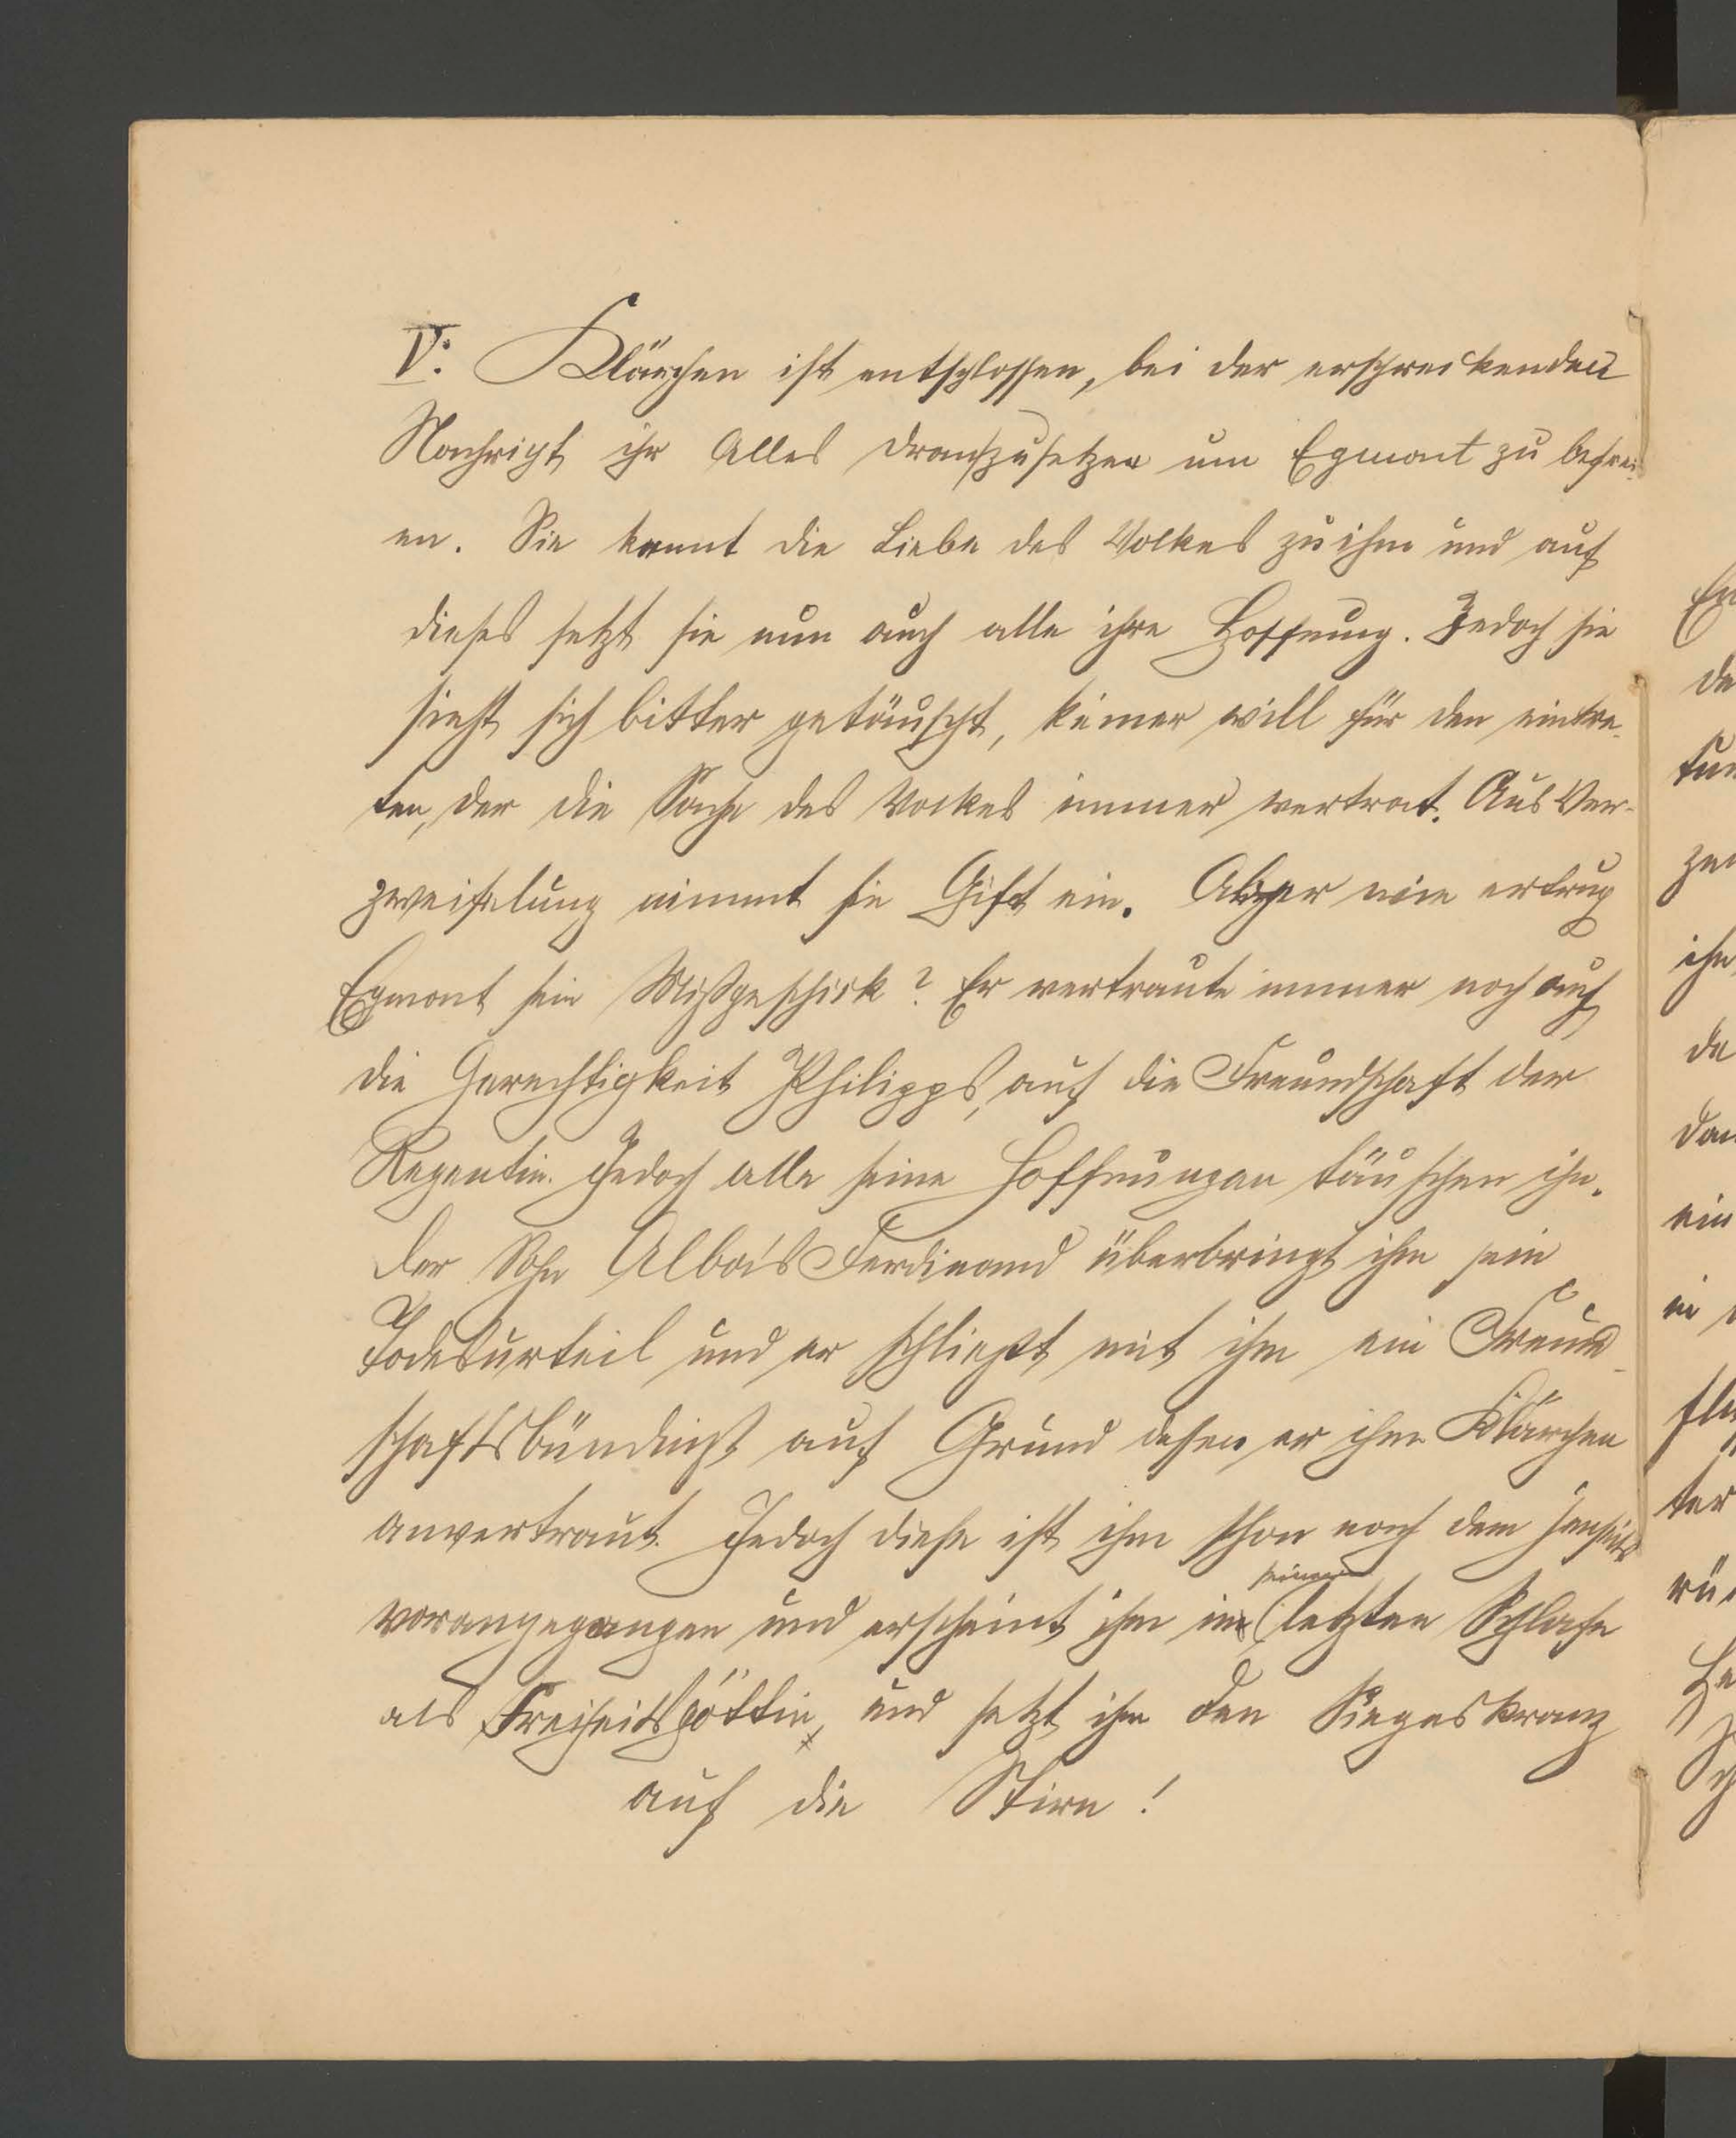 V. Klärchen ist entschlossen, bei der erschreckenden
Nachricht ihr Alles dranzusetzen um Egmont zu befrei-
en. Sie kennt die Liebe des Volkes zu ihm und auf
dieses setzt sie nun auch alle ihre Hoffnung. Jedoch sie
sieht sich bitter getäuscht, keiner will für den eintre-
ten, der die Sache des Volkes immer vertrat. Aus Ver-
zweifelung nimmt sie Gift ein. Aber wie ertrug
Egmont sein Mißgeschick? Er vertraute immer noch auf
die Gerechtigkeit Philipps, auf die Freundschaft der
Regentin. Jedoch alle seine Hoffnungen täuschen ihn.
Der Sohn Alba's Ferdinand überbringt ihm sein
Todesurteil und er schließt mit ihm ein Freund-
schaftsbündniß auf Grund dessen er ihm Klärchen
anvertraut. Jedoch diese ist ihm schon nach dem Jenseits
vorangegangen und erscheint ihm im seinem letzten Schlafe
als Freiheitsgöttin, und setzt ihm den Siegeskranz
auf die Stirn!